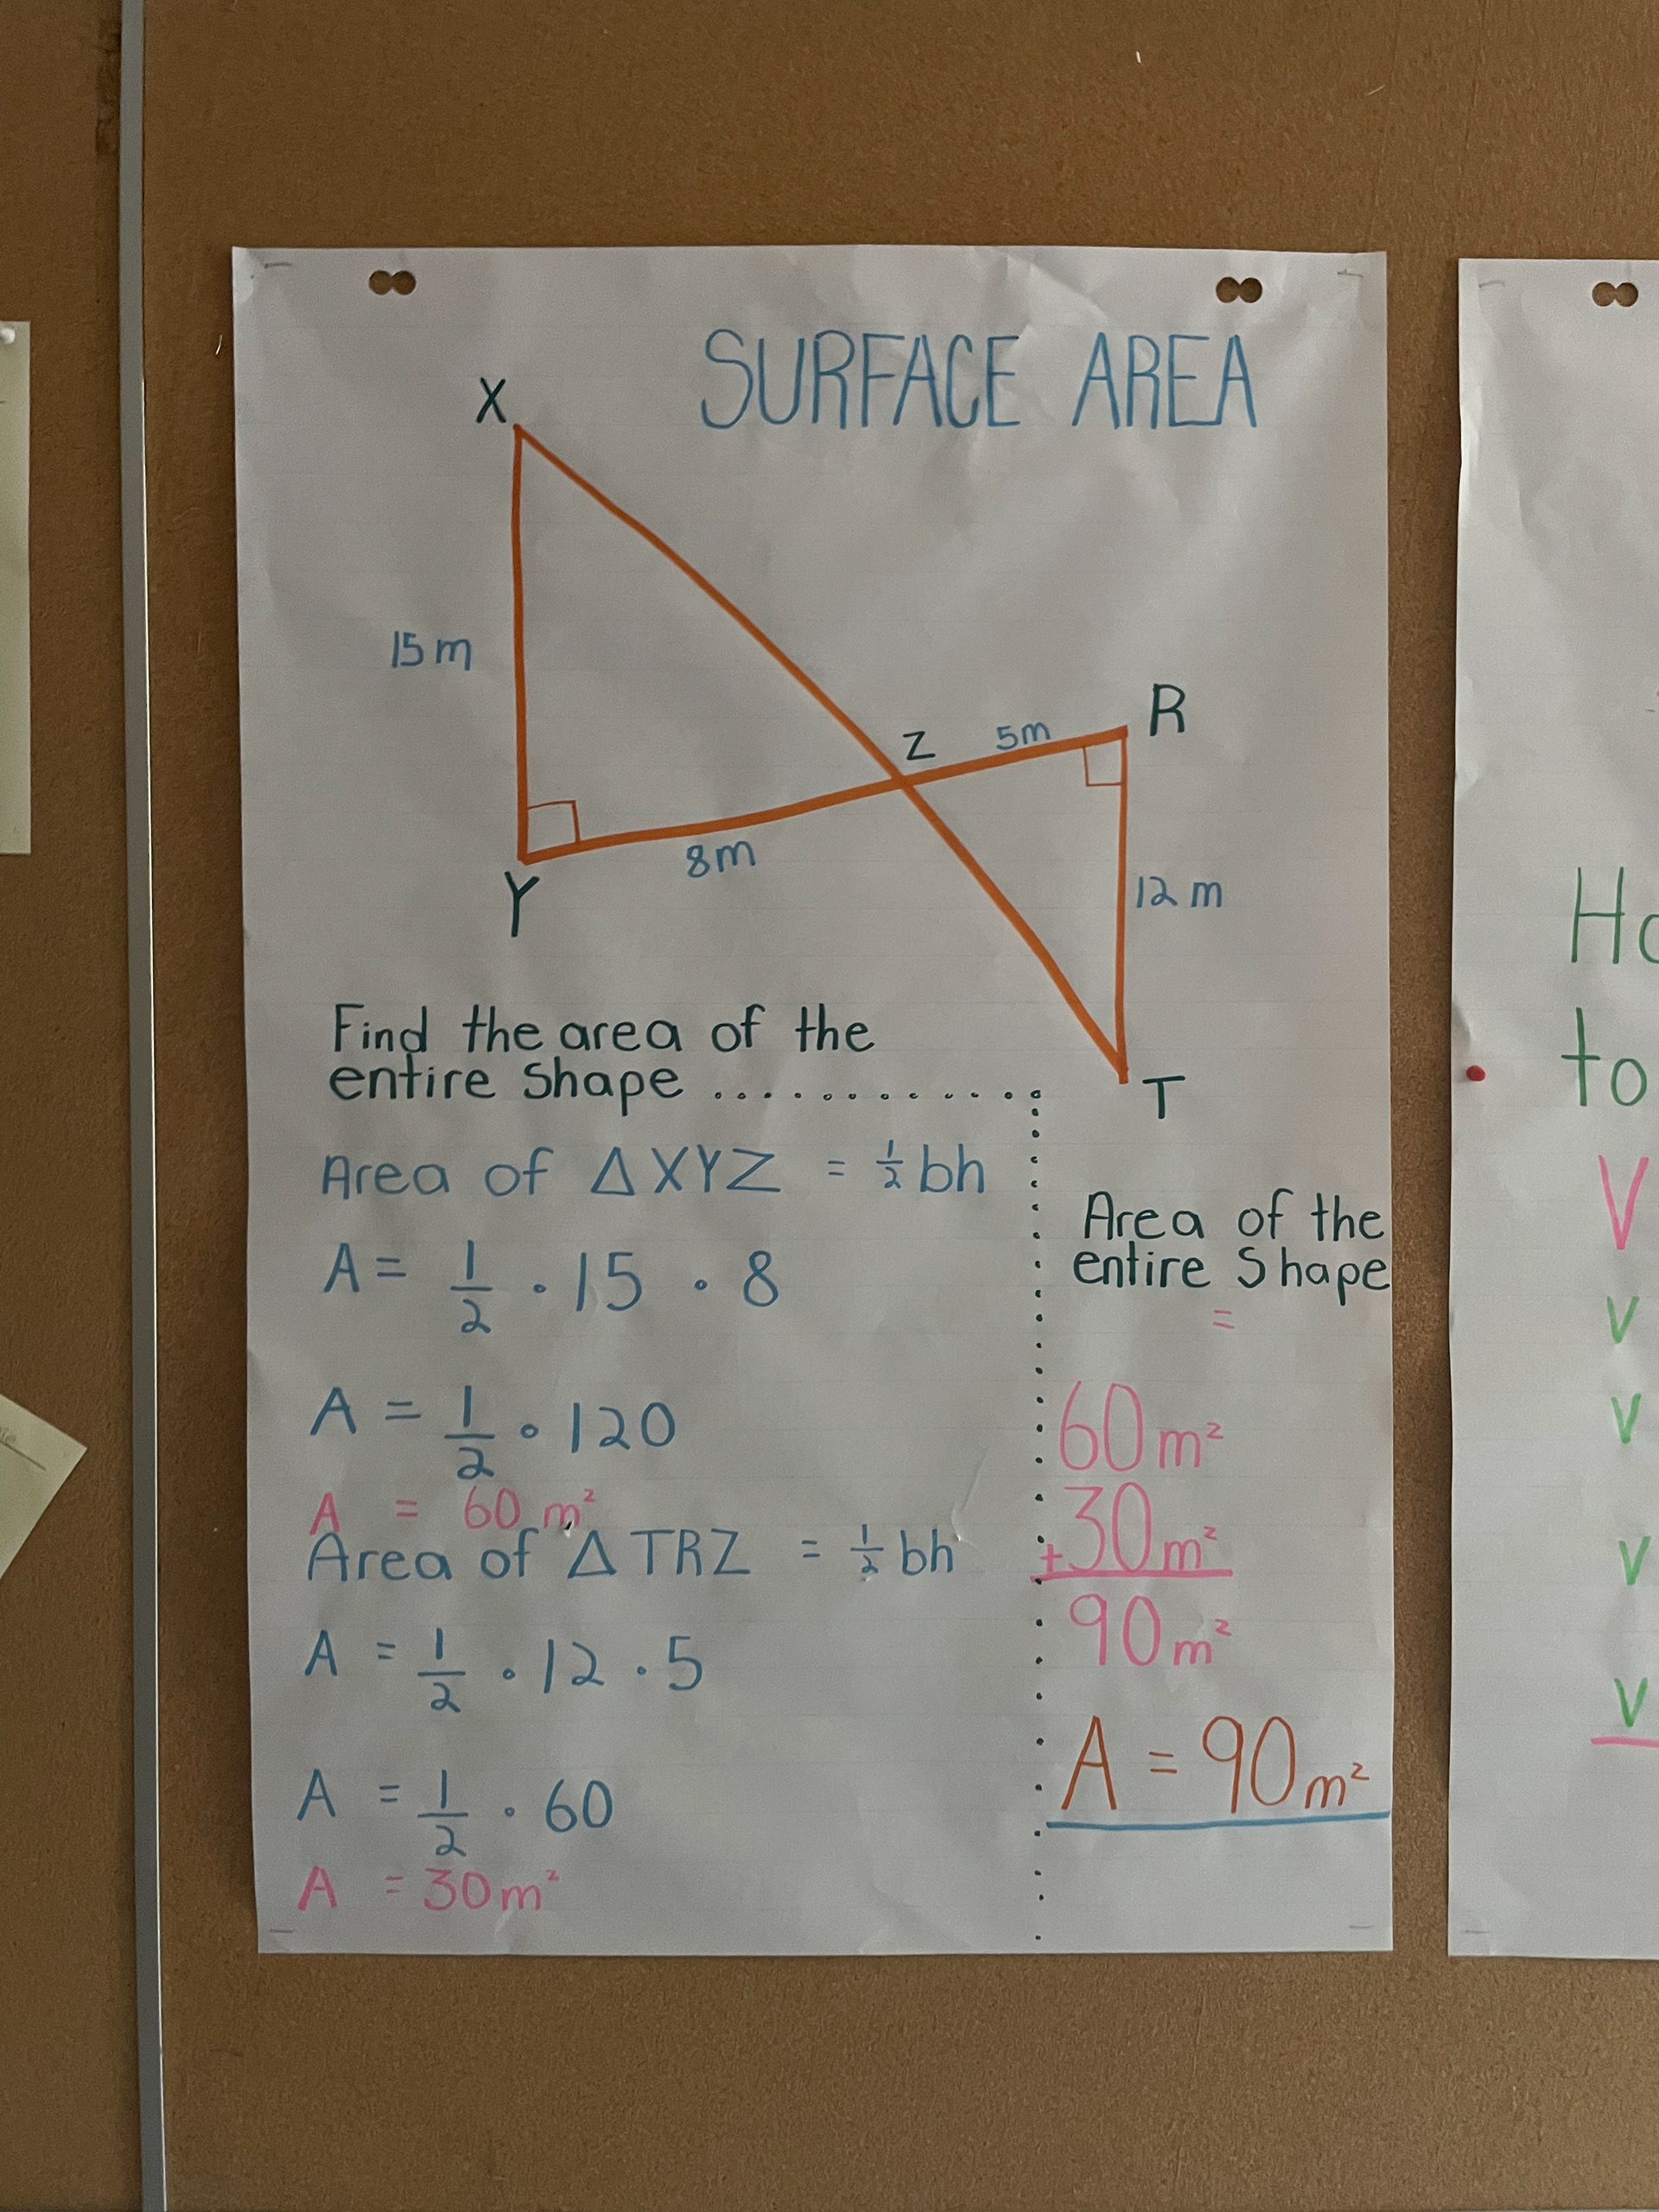 SURFACE AREA
X
15m
Z
5m
R
8m
Y
12m
T
Find the area of the
entire Shape ............
Area of △XYZ = ½bh
A = ½ · 15 · 8
A = ½ · 120
A = 60m²
Area of △TRZ = ½bh
A = ½ · 12 · 5
A = ½ · 60
A = 30m²
Area of the
entire Shape
=
60m²
+30m²
90m²
A = 90m²
to
V
v
v
v
v